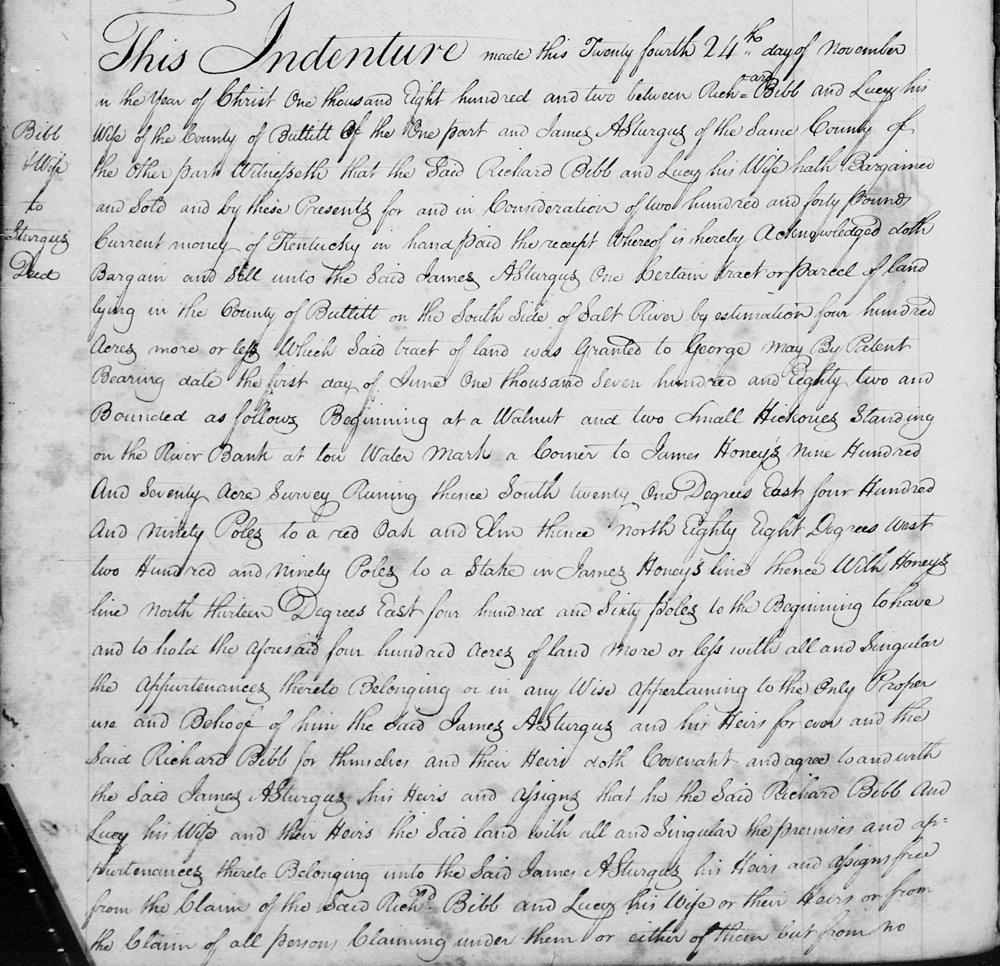 This Indenture made this Twenty fourth 24th day of November
in the Year of Christ One thousand Eight hundred and two between Rich=ard Bibb and Lucy his
Bibb
& Wife
to
Sturgus
Deed
Wife of the County of Buttitt Of the One part and James A Sturgus of the Same County of
the Other part Witnesseth that the Said Richard Bibb and Lucy his Wife hath Bargained
and Sold and by these Presents for and in Consideration of two hundred and forty Pounds
Current money of Kentucky in hand paid the receipt Whereof is hereby Acknowledged doth
Bargain and Sell unto the Said James A Sturgus One Certain tract or parcel of land
lying in the County of Buttitt on the South Side of Salt River by estimation four hundred
Acres more or less Which Said tract of land was Granted to George May By Patent
Bearing date the first day of June One thousand Seven hundred and Eighty two and
Bounded as follows Beginning at a Walnut and two Small Hickories Standing
on the River Bank at low Water Mark a Corner to James Honey's Nine Hundred
And Seventy Acre Survey Runing thence South twenty One Degrees East four Hundred
And Ninety Poles to a red Oak and Elm thence North Eighty Eight Degrees West
two Hundred and Ninety Poles to a Stake in James Honey's line thence With Honey's
line North thirteen Degrees East four hundred and Sixty poles to the Beginning to have
and to hold the aforesaid four hundred Acres of land More or less with all and Singular
the Appurtenances thereto Belonging or in any Wise Appertaining to the Only Proper
use and Behoof of him the Said James A Sturgus and his Heirs for ever and the
Said Richard Bibb for themselves and their Heirs doth Covenant and agree to and with
the Said James A Sturgus his Heirs and assigns that he the Said Richard Bibb And
Lucy his Wife and their Heirs the Said land with all and Singular the premises and ap=
purtenances thereto Belonging unto the Said James A Sturgus his Heirs and assigns free
from the Claim of the Said Richd Bibb and Lucy his Wife or their Heirs or from
the Claim of all persons Claiming under them or either of them but from no